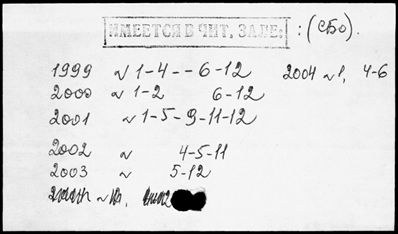 ИМЕЕТСЯ В ЧИТ. ЗАЛЕ: : (СБО).
1999 № 1-4--6-12 2004 № 1, 4-6
2000 № 1-2 6-12
2001 № 1-5-9-11-12
2002 № 4-5-11
2003 № 5-12